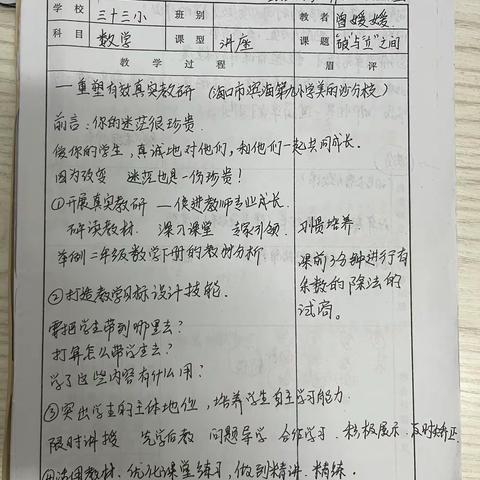 学校 三十三小 班别 教者 曾媛媛
科目 数学 课型 讲座 课题 "破"与"立"之间
教学过程 眉评
一 重塑有效真实教研 (海口市滨海第九小学美丽沙分校)
前言:你的迷茫很珍贵
爱你的学生,真诚地对他们,和他们一起共同成长.
因为改变 迷茫也是一份珍贵!
①开展真实教研 — 促进教师专业成长.
研读教材. 深入课堂 专家引领. 习惯培养.
举例二年级数学下册的教材分析
课前3分钟进行有
余数的除法的
试商。
②打造教学目标设计技能.
要把学生带到哪里去?
打算怎么带学生去?
学了这些内容有什么用?
③突出学生的主体地位,培养学生自主学习能力.
限时讲授 先学后教 问题导学 合作学习. 积极展示. 及时矫正.
④活用教材.优化课堂练习,做到精讲.精练.